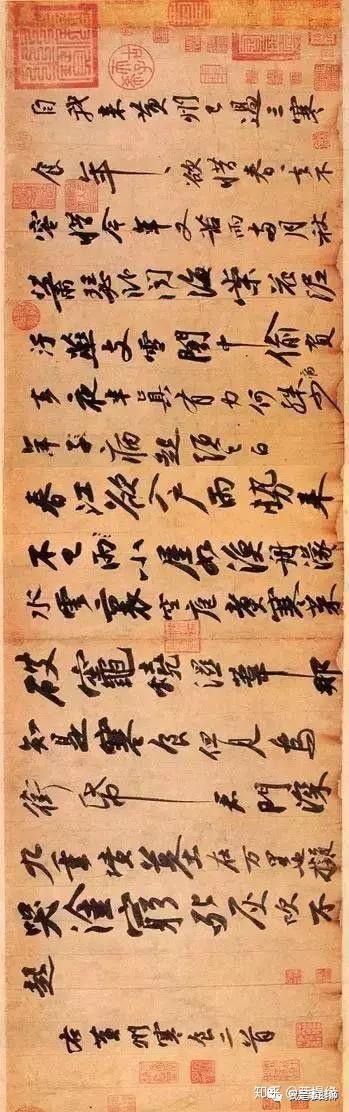 自我來黃州已過三寒
食年〻欲惜春〻去不
容惜今年又苦雨兩月秋
蕭瑟臥聞海棠花泥
汙燕支雪闇中偷負
去夜半真有力何殊病少
年子病起頭已白
春江欲入戶雨勢來
不已雨小屋如漁舟濛〻
水雲裏空庖煮寒菜
破竈燒濕葦那
知是寒食但見烏
銜帋君門深
九重墳墓在万里也擬
哭塗窮死灰吹不
起
右黃州寒食二首
知乎 @菩提缘